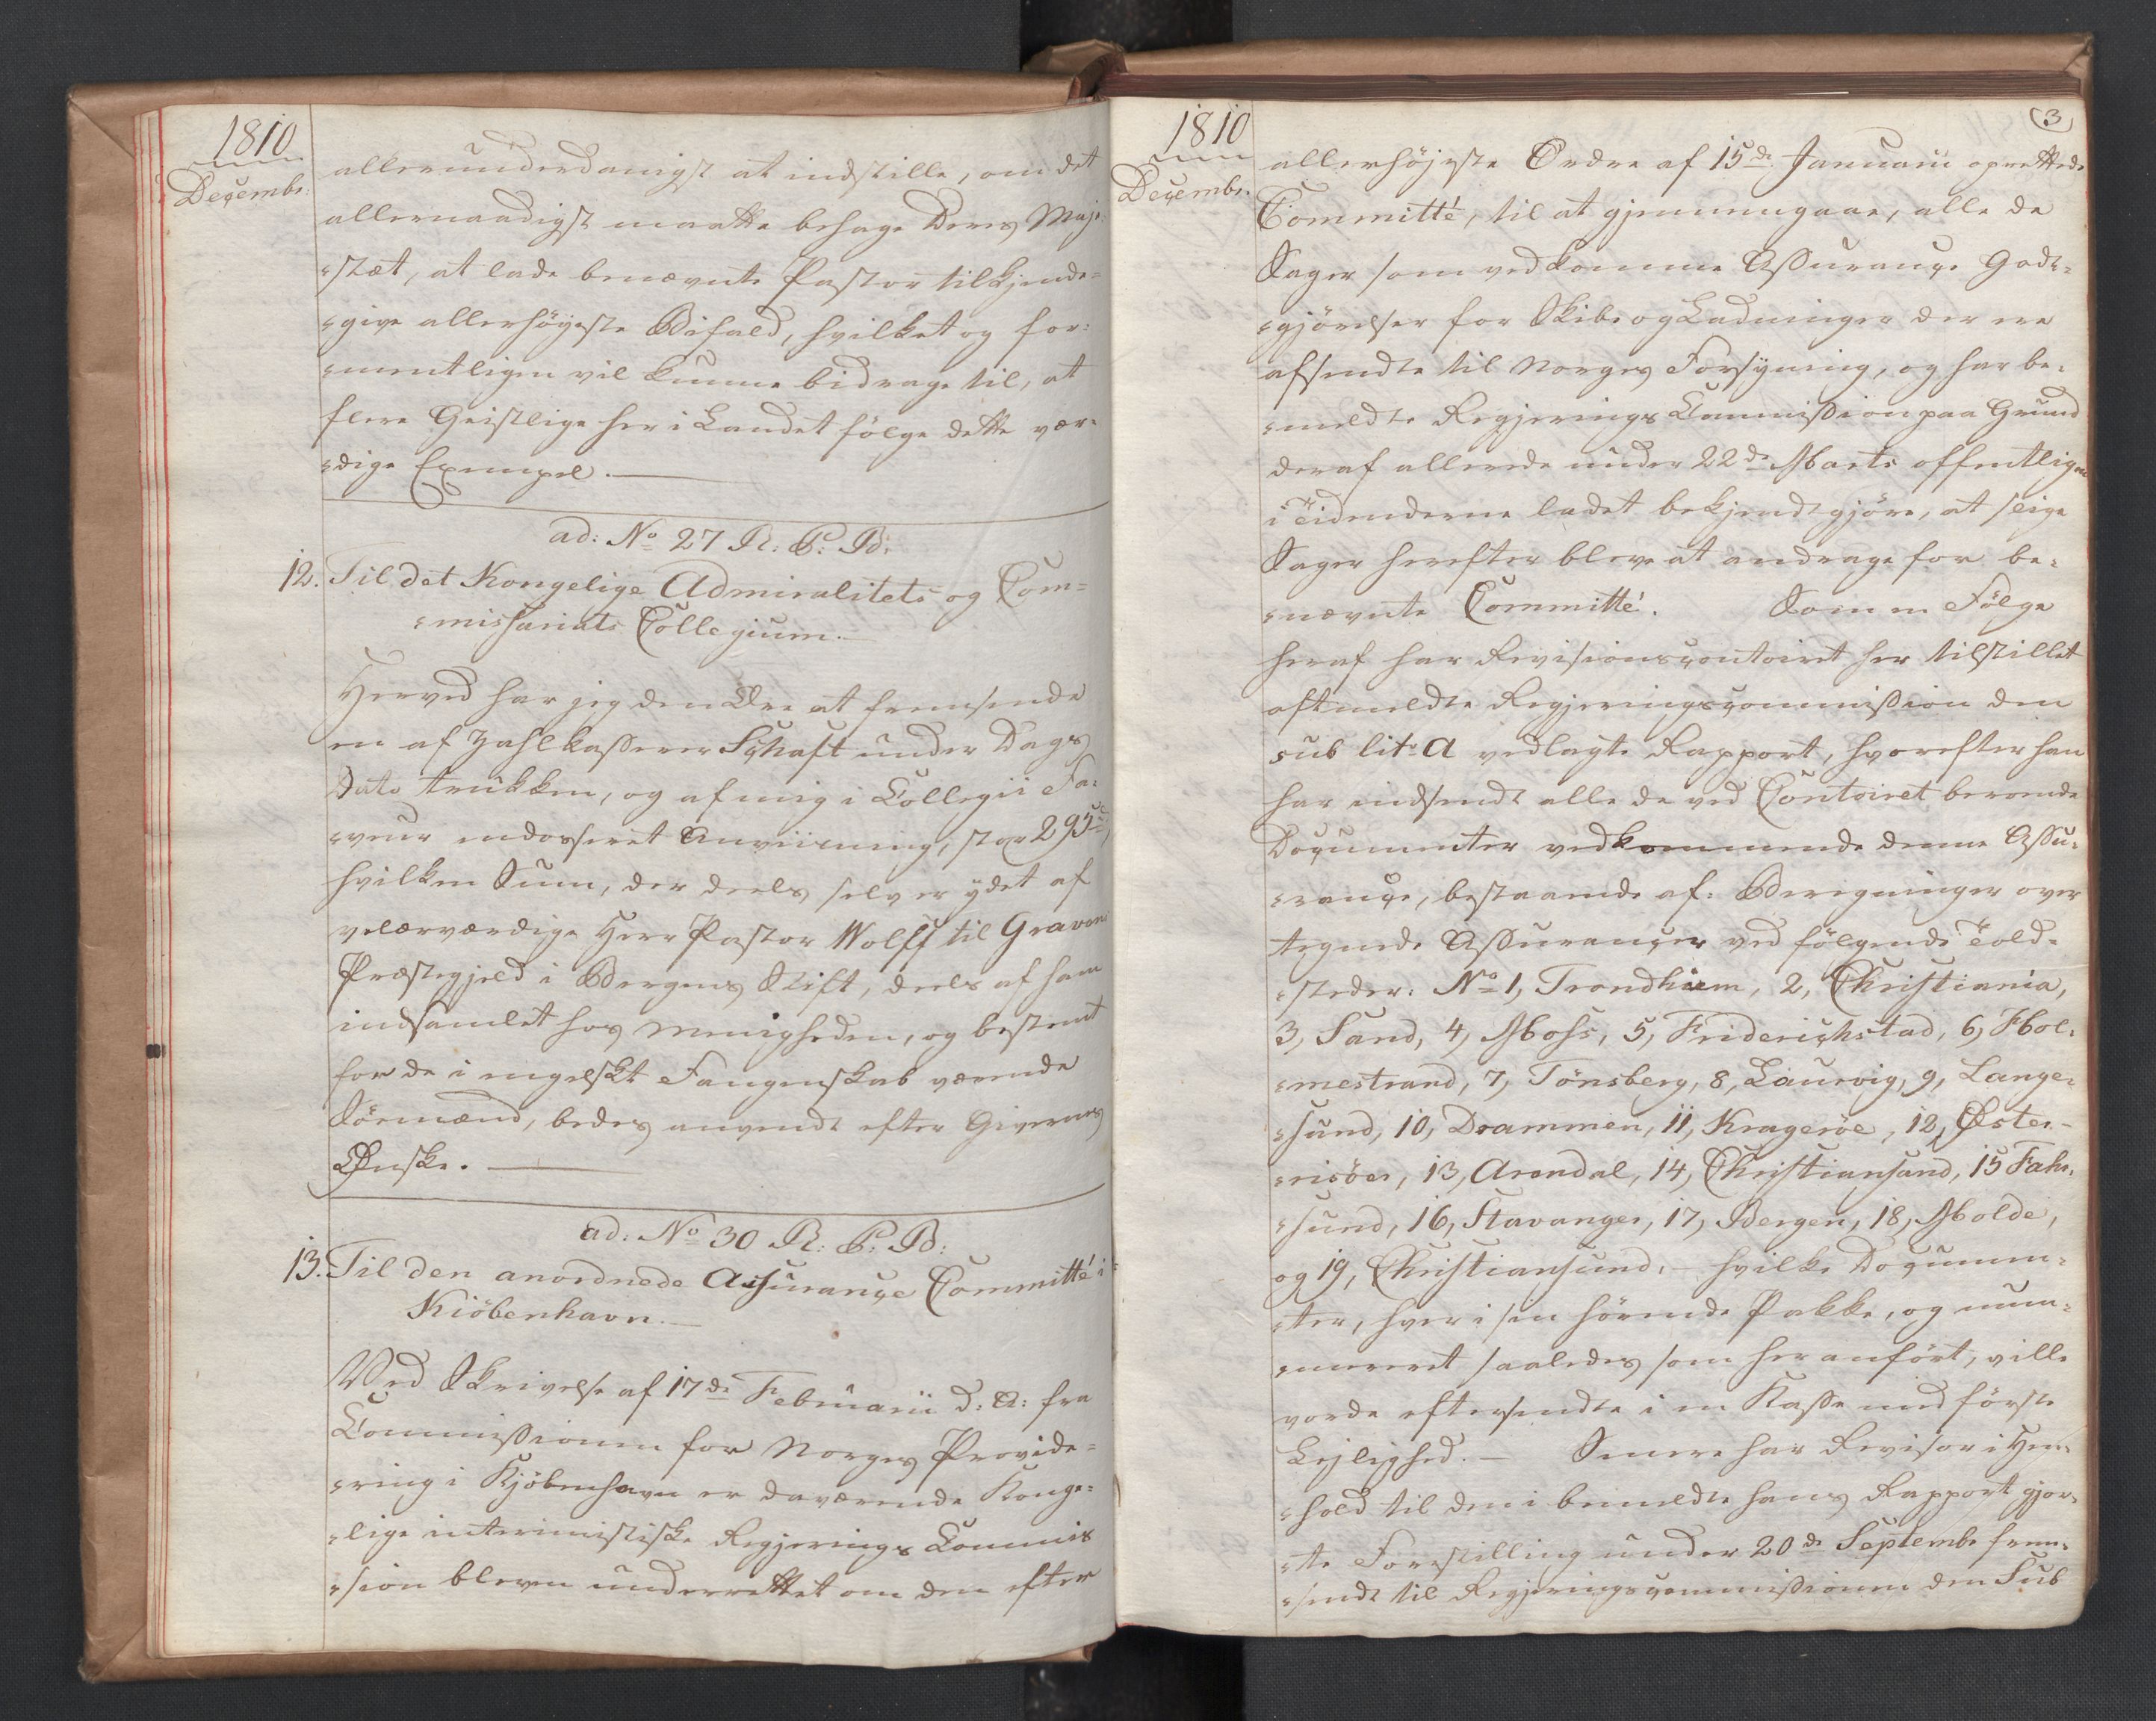 1810
Decembr:
allerunderdanigst at indstille, om det
allernaadigst maatte behage Deres Maje-
-stæt, at lade benævnte Pastor tilkjende-
-give allerhöyeste Bifald, hvilket og for-
-mentligen vil kunne bidrage til, at
flere Geistlige her i Landet fölge dette vær-
-dige Exempel.
ad: No 27 R: P: B:
12. Til det Kongelige Admiralitets og Com-
-missariats Collegium.
Herved har jeg den Ære at fremsende
en af Zahlkasserer Schaft under Dags
Dato trukken, og af mig i Collegii Fa-
-veur endosseret Anviisning, stor 295
hvilken Sum, der deels selv er ydet af
velærværdige Herr Pastor Wolff til Gravens
Præstegjeld i Bergens Stift, deels af ham
indsamlet hos Menigheden, og bestemt
for de i engelskt Fangenskab værende
Sömænd, bedes anvendt efter Givernes
Ønske.
ad: No 30 R: P: B:
13. Til den anordnede Assurançe Committé i
Kiöbenhavn.
Ved Skrivelse af 17de Februarii d: A: fra
Commissionen for Norges Provide-
-ring i Kjöbenhavn er daværende Konge-
-lige interimistiske Regjerings Commis
-sion bleven underrettet om den efter
1810
Decembr.
3
allerhöjeste Ordre af 15de Januarii oprettede
Committé, til at gjennemgaae, alle de
Sager som vedkomme Assurançe Godt-
-gjörelser for Skibe og Ladninger der ere
afsendte til Norges Forsyning, og har be-
-meldte Regjerings Commission paa Grund
deraf allerede under 22de Marts offentligen
i Tidenderne ladet bekjendtgjöre, at slige
Sager herefter bleve at andrage for be-
-nævnte Committé. Som en Fölge
heraf har Revisionscontoiret her tilstillet
oftmeldte Regjeringscommission den
sub litr A vedlagte Rapport, hvorefter han
har indsendt alle de ved Contoiret beroende
Documenter vedkommende denne Assu-
-rançe, bestaaende af: Beregninger over
tegnede Assurançer ved fölgende Told-
-steder: No 1, Trondhiem, 2, Christiania,
3, Sand, 4, Moss, 5, Friderichstad, 6, Hol-
-mestrand, 7, Tönsberg, 8, Laurvig, 9, Lange-
-sund, 10, Drammen, 11, Krageröe, 12, Øster-
-risöer, 13, Arendal, 14, Christiansand, 15 Fahr-
-sund, 16, Stavanger, 17, Bergen, 18, Molde,
og 19, Christiansund, - hvilke Documen-
-ter, hver i sin hörende Pakke, og num-
-mereret saaledes som her anfört, ville
vorde eftersendte i en Kasse med förste
Lejlighed. - Senere har Revisor i Hen-
-hold til den i bemeldte hans Rapport gjor-
-te Forestilling under 20de Septembr frem-
-sendt til Regjeringscommissionen den Sub